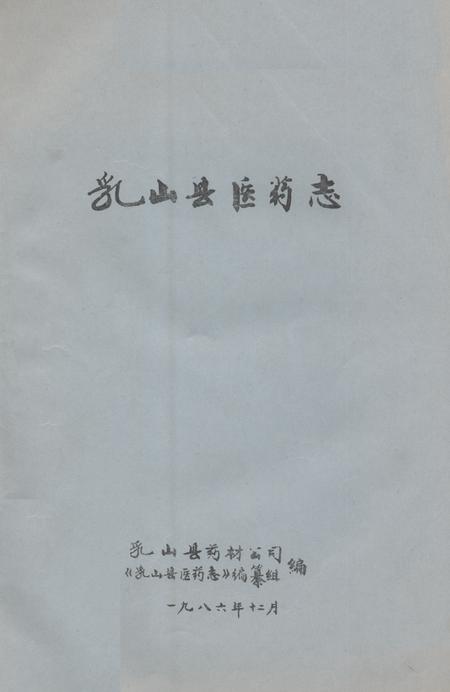 乳山县医药志
乳山县药材公司
《乳山县医药志》编纂组 编
一九八六年十二月